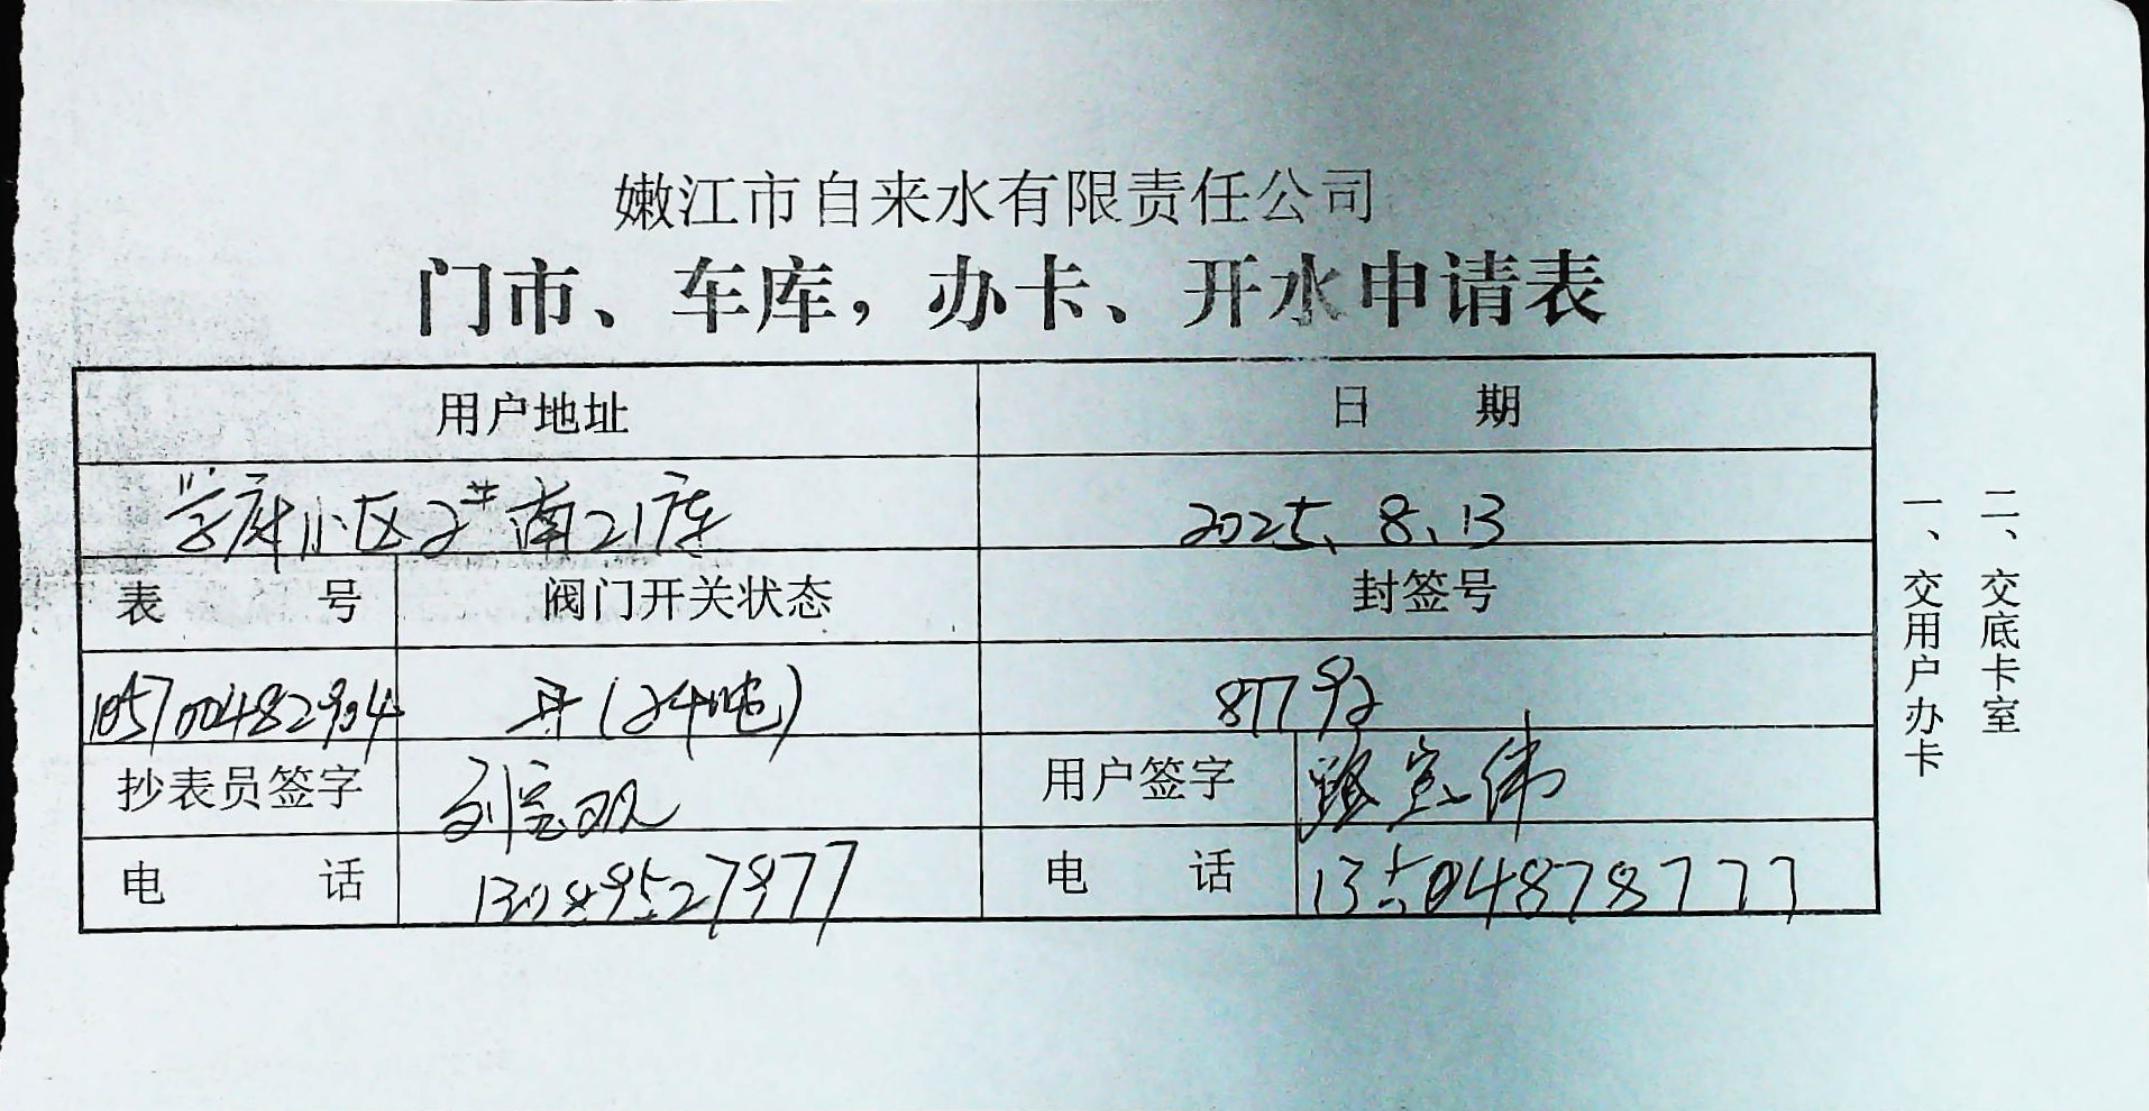 嫩江市自来水有限责任公司
门市、车库，办卡、开水申请表
用户地址 日 期
学府小区2# 南21库 2025、8、13
表 号 阀门开关状态 封签号
105700482904 开(24吨) 87792
抄表员签字 刘宝双 用户签字 路宝伟
电 话 电 话 13504878777
一、交用户办卡
二、交底卡室